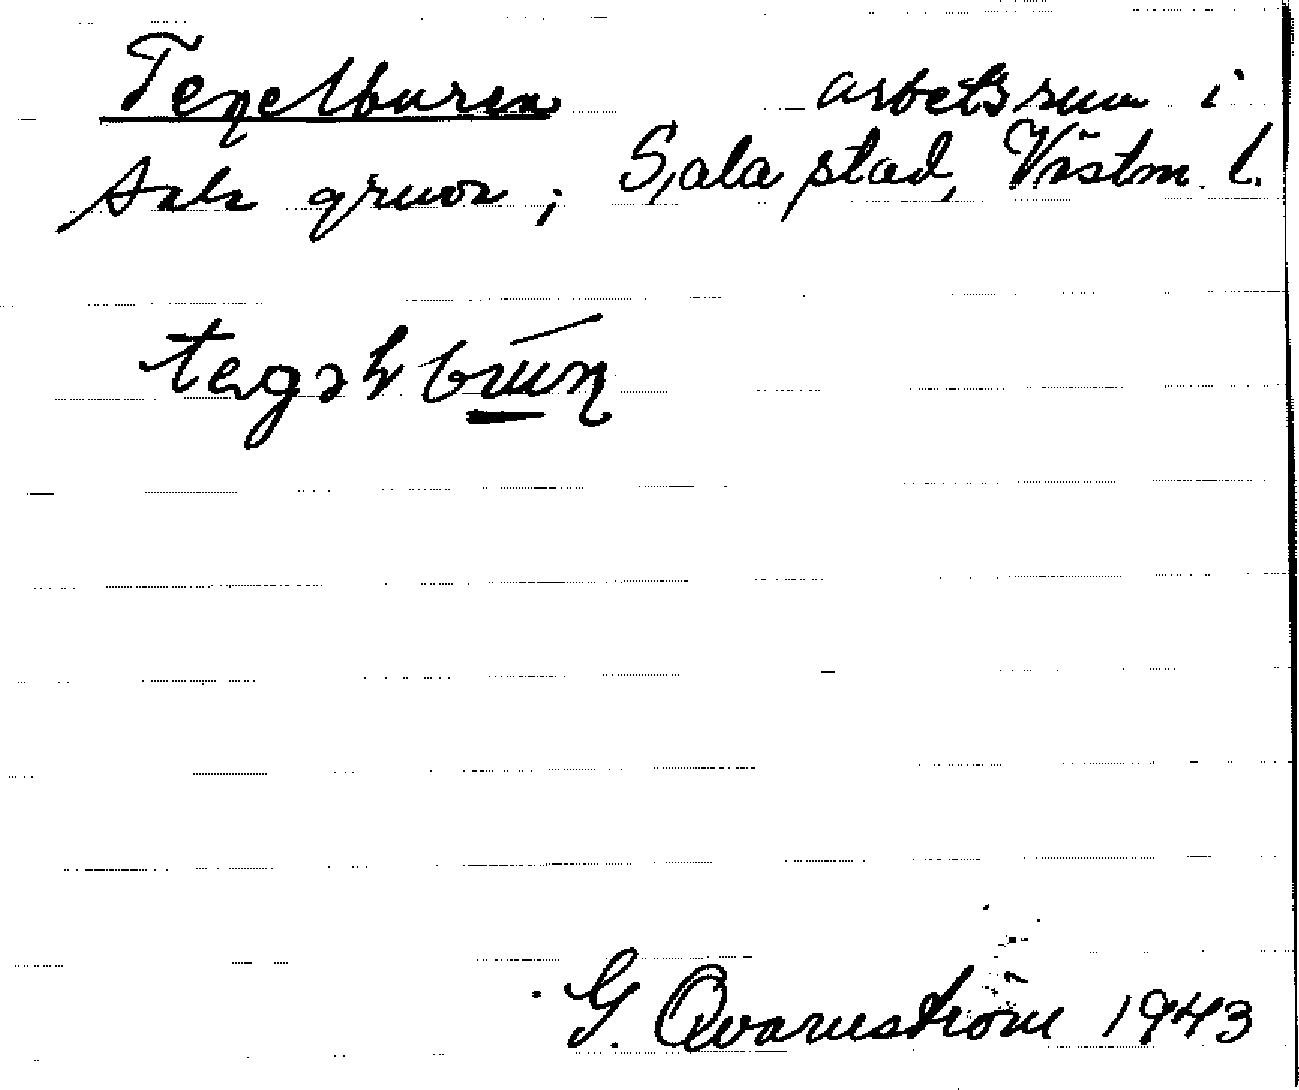 Tegelburen arbetsrum i
Sala gruva; Sala stad, Västm. l.
G. Qvarnström 1943